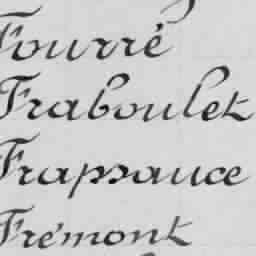 Fourré
Fraboulet
Frapsauce
Frémont